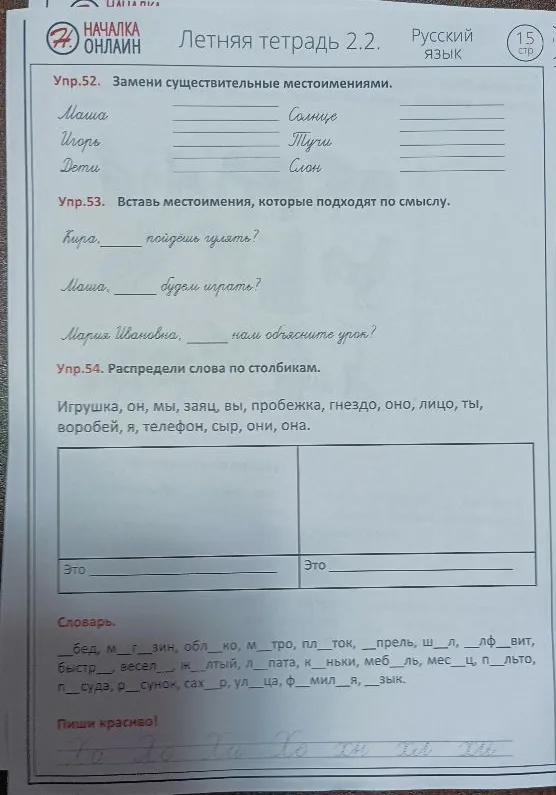 НАЧАЛКА
ОНЛАЙН
Летняя тетрадь 2.2.
Русский
язык
15
стр
Упр.52. Замени существительные местоимениями.
Маша ________ Солнце ________
Игорь ________ Тучи ________
Дети ________ Слон ________
Упр.53. Вставь местоимения, которые подходят по смыслу.
Кира, ______ пойдёшь гулять?
Маша, ______ будем играть?
Мария Ивановна, ______ нам объясните урок?
Упр.54. Распредели слова по столбикам.
Игрушка, он, мы, заяц, вы, пробежка, гнездо, оно, лицо, ты,
воробей, я, телефон, сыр, они, она.
Это ________ Это ________
Словарь.
__бед, м__г__зин, обл__ко, м__тро, пл__ток, __прель, ш__л, __лф__вит,
быстр__, весел__, ж__лтый, л__пата, к__ньки, меб__ль, мес__ц, п__льто,
п__суда, р__сунок, сах__р, ул__ца, ф__мил__я, __зык.
Пиши красиво!